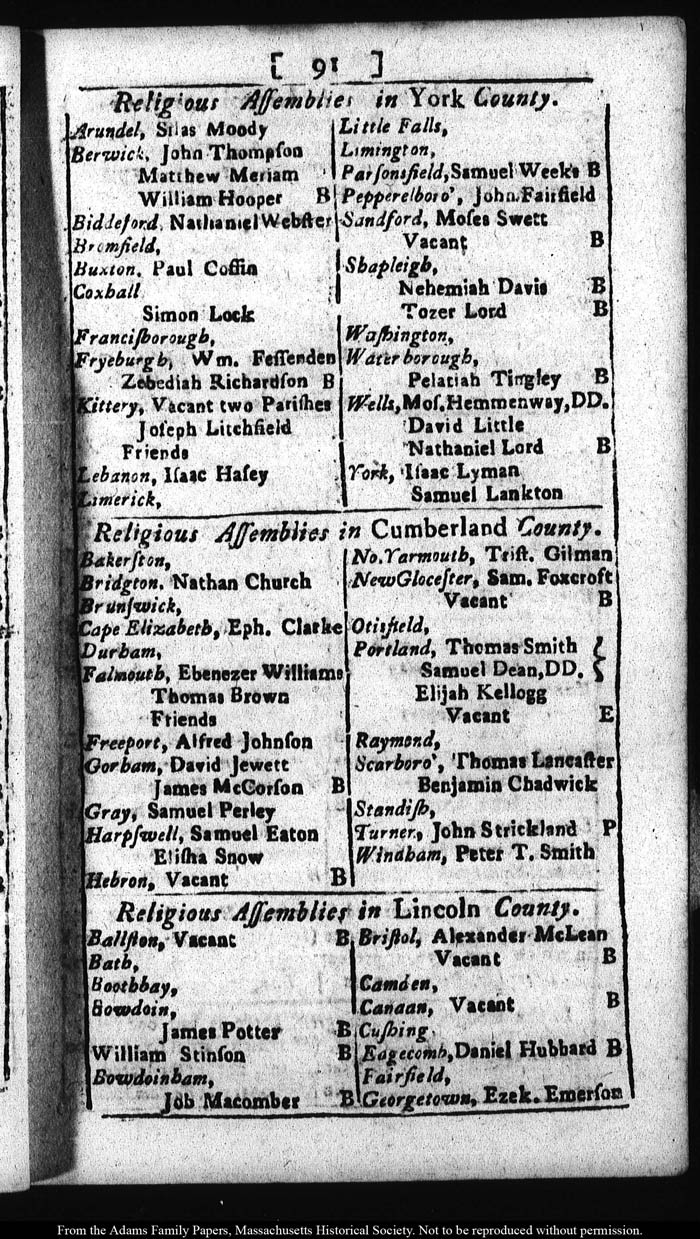 [ 91 ]
Religious Aſſemblies in York County.
Arundel, Silas Moody
Berwick, John Thompſon
Matthew Meriam
William Hooper B
Biddeford, Nathaniel Webſter
Bromfield,
Buxton, Paul Coffin
Coxhall
Simon Lock
Franciſborough,
Fryeburgh, Wm. Feſſenden
Zebediah Richardſon B
Kittery, Vacant two Pariſhes
Joſeph Litchfield
Friends
Lebanon, Iſaac Haſey
Limerick,
Little Falls,
Limington,
Parſonsfield, Samuel Weeks B
Pepperelboro', John Fairfield
Sandford, Moſes Swett
Vacant B
Shapleigh,
Nehemiah Davis B
Tozer Lord B
Waſhington,
Waterborough,
Pelatiah Tingley B
Wells, Moſ. Hemmenway, DD.
David Little
Nathaniel Lord B
York, Iſaac Lyman
Samuel Lankton
Religious Aſſemblies in Cumberland County.
Bakerſton,
Bridgton, Nathan Church
Brunſwick,
Cape Elizabeth, Eph. Clarke
Durham,
Falmouth, Ebenezer Williams
Thomas Brown
Friends
Freeport, Alfred Johnſon
Gorham, David Jewett
James McCorſon B
Gray, Samuel Perley
Harpſwell, Samuel Eaton
Eliſha Snow
Hebron, Vacant B
No. Yarmouth, Triſt. Gilman
New Gloceſter, Sam. Foxcroft
Vacant B
Otisfield,
Portland, Thomas Smith }
Samuel Dean, DD. }
Elijah Kellogg
Vacant E
Raymond,
Scarboro', Thomas Lancaſter
Benjamin Chadwick
Standiſh,
Turner, John Strickland P
Windham, Peter T. Smith
Religious Aſſemblies in Lincoln County.
Ballſton, Vacant B
Bath,
Boothbay,
Bowdoin,
James Potter B
William Stinſon B
Bowdoinham,
Job Macomber B
Briſtol, Alexander McLean
Vacant B
Camden,
Canaan, Vacant B
Cuſhing
Eagecomb, Daniel Hubbard B
Fairfield,
Georgetown, Ezek. Emerſon
From the Adams Family Papers, Massachusetts Historical Society. Not to be reproduced without permission.